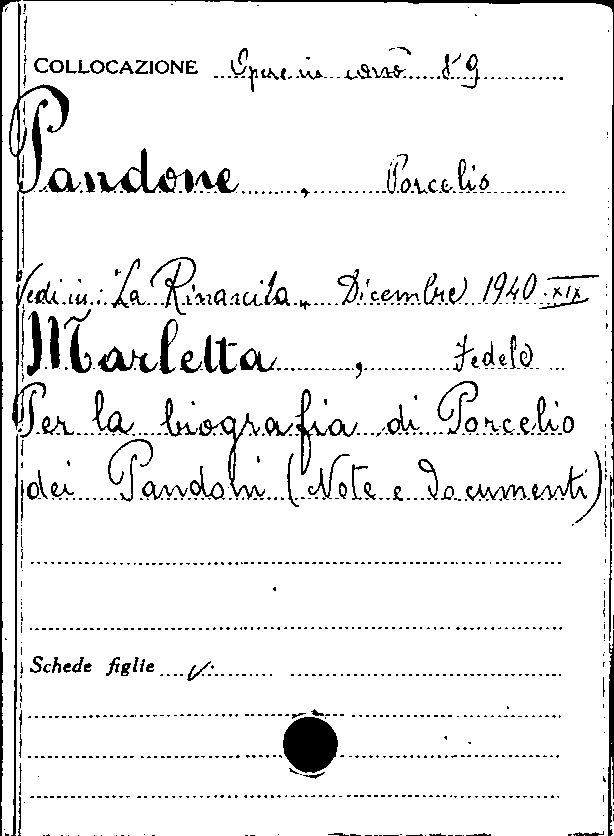 COLLOCAZIONE Opere in corso 8° 9
Pandone, Porcelio
Vedi in: "La Rinascita" Dicembre 1940 XIX
Marletta, Fedele
Per la biografia di Porcelio
dei Pandoni (Note e documenti)
Schede figlie